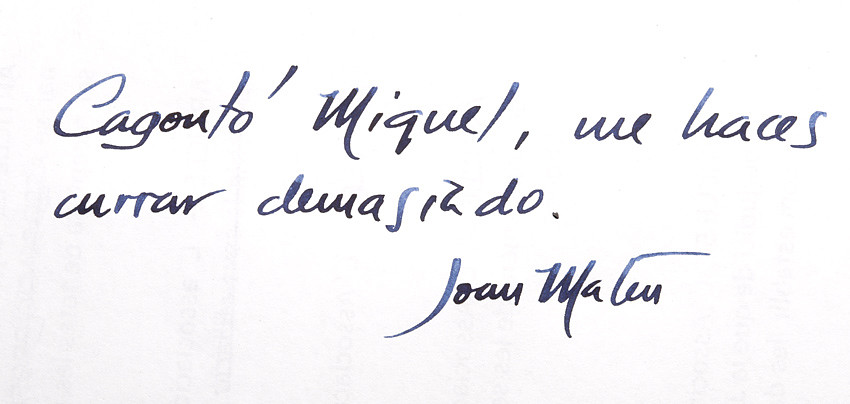 Cagontó Miquel, me haces
currar demasiado.
Joan Mateu